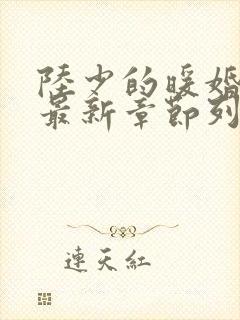 陸少的暖婚
最新章節列
連天紅